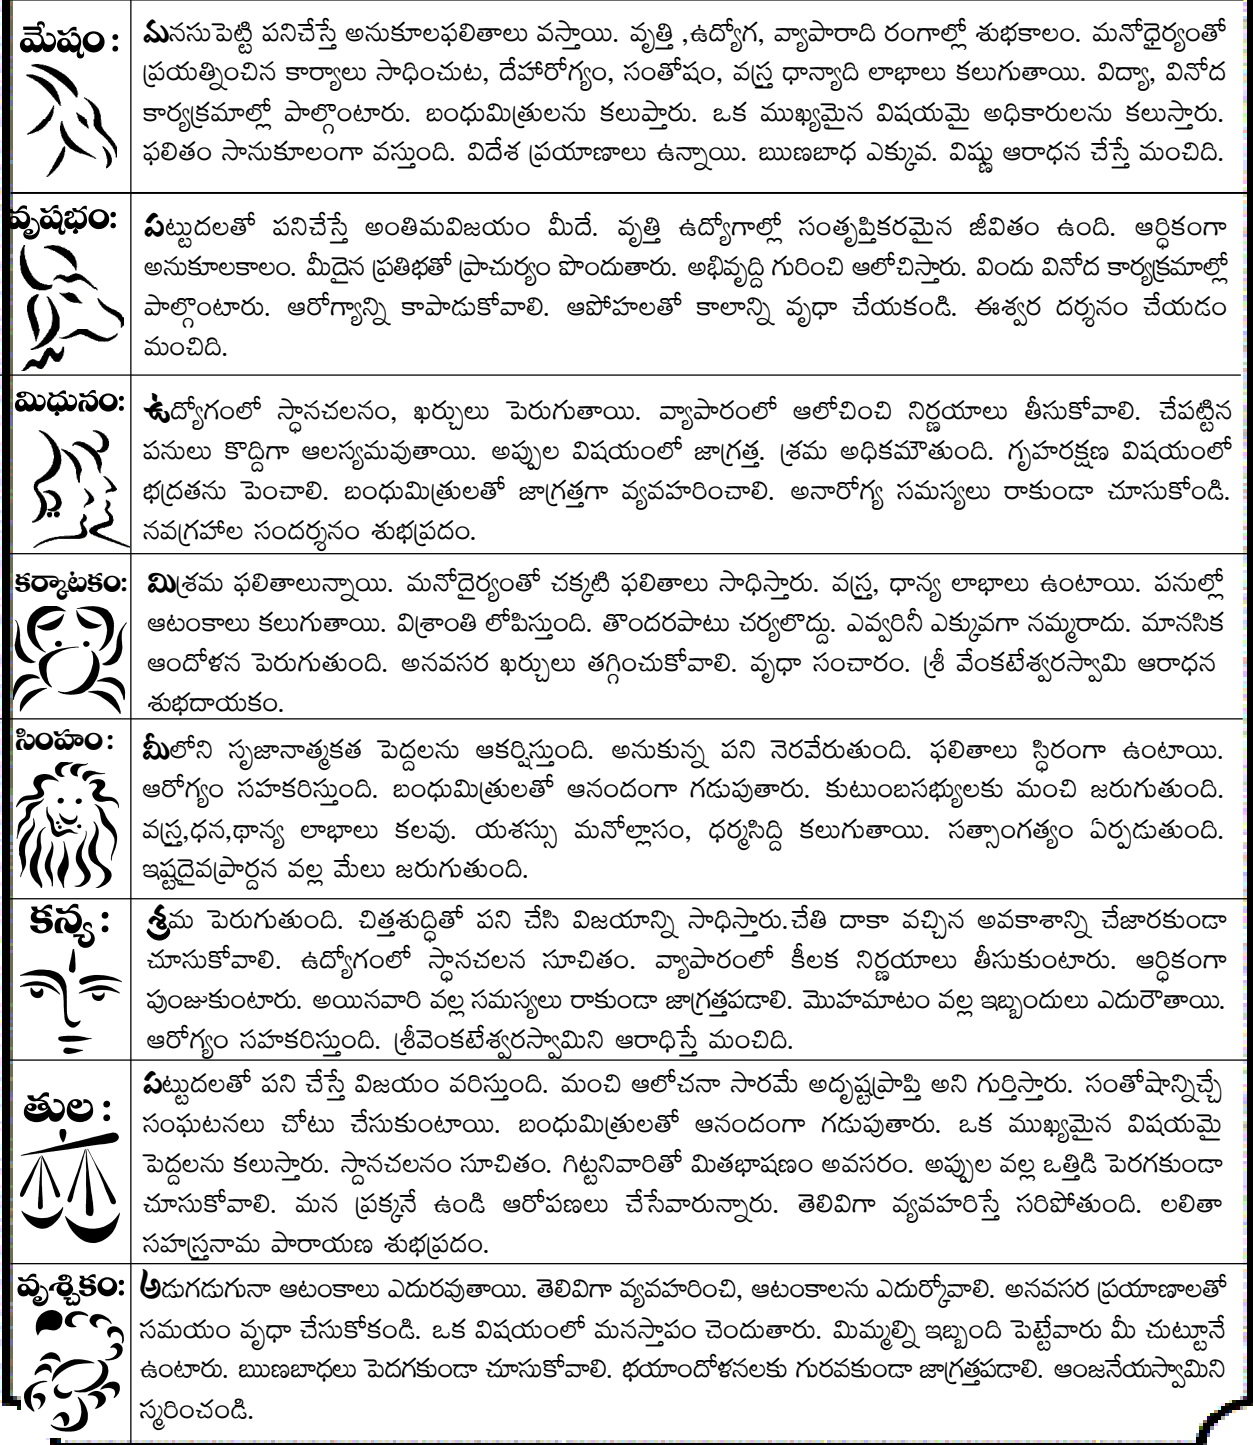 మేషం:
ఏనసుపెట్టి పనిచేస్తే అనుకూలఫలితాలు వస్తాయి. వృత్తి ,ఉద్యోగ, వ్యాపారాది రంగాల్లో శుభకాలం. మనోధైర్యంతో
ప్రయత్నించిన కార్యాలు సాధించుట, దేహారోగ్యం, సంతోషం, వస్త్ర ధాన్యాది లాభాలు కలుగుతాయి. విద్యా, వినోద
కార్యక్రమాల్లో పాల్గొంటారు. బంధుమిత్రులను కలుస్తారు. ఒక ముఖ్యమైన విషయమై అధికారులను కలుస్తారు.
ఫలితం సానుకూలంగా వస్తుంది. విదేశ ప్రయాణాలు ఉన్నాయి. ఋణబాధ ఎక్కువ. విష్ణు ఆరాధన చేస్తే మంచిది.
వృషభం:
పట్టుదలతో పనిచేస్తే అంతిమవిజయం మీదే. వృత్తి ఉద్యోగాల్లో సంతృప్తికరమైన జీవితం ఉంది. ఆర్ధికంగా
అనుకూలకాలం. మీదైన ప్రతిభతో ప్రాచుర్యం పొందుతారు. అభివృద్ది గురించి ఆలోచిస్తారు. విందు వినోద కార్యక్రమాల్లో
పాల్గొంటారు. ఆరోగ్యాన్ని కాపాడుకోవాలి. ఆపోహలతో కాలాన్ని వృధా చేయకండి. ఈశ్వర దర్శనం చేయడం
మంచిది.
మిధునం:
ఉద్యోగంలో స్ధానచలనం, ఖర్చులు పెరుగుతాయి. వ్యాపారంలో ఆలోచించి నిర్ణయాలు తీసుకోవాలి. చేపట్టిన
పనులు కొద్దిగా ఆలస్యమవుతాయి. అప్పుల విషయంలో జాగ్రత్త. శ్రమ అధికమౌతుంది. గృహరక్షణ విషయంలో
భద్రతను పెంచాలి. బంధుమిత్రులతో జాగ్రత్తగా వ్యవహరించాలి. అనారోగ్య సమస్యలు రాకుండా చూసుకోండి.
నవగ్రహాల సందర్శనం శుభప్రదం.
కర్కాటకం:
మిశ్రమ ఫలితాలున్నాయి. మనోదైర్యంతో చక్కటి ఫలితాలు సాధిస్తారు. వస్త్ర, ధాన్య లాభాలు ఉంటాయి. పనుల్లో
ఆటంకాలు కలుగుతాయి. విశ్రాంతి లోపిస్తుంది. తొందరపాటు చర్యలొద్దు. ఎవ్వరినీ ఎక్కువగా నమ్మరాదు. మానసిక
ఆందోళన పెరుగుతుంది. అనవసర ఖర్చులు తగ్గించుకోవాలి. వృధా సంచారం. శ్రీ వేంకటేశ్వరస్వామి ఆరాధన
శుభదాయకం.
సింహం:
మీలోని సృజానాత్మకత పెద్దలను ఆకర్షిస్తుంది. అనుకున్న పని నెరవేరుతుంది. ఫలితాలు స్ధిరంగా ఉంటాయి.
ఆరోగ్యం సహకరిస్తుంది. బంధుమిత్రులతో ఆనందంగా గడుపుతారు. కుటుంబసభ్యులకు మంచి జరుగుతుంది.
వస్త్ర,ధన,ధాన్య లాభాలు కలవు. యశస్సు మనోల్లాసం, ధర్మసిద్ది కలుగుతాయి. సత్సాంగత్యం ఏర్పడుతుంది.
ఇష్టదైవప్రార్దన వల్ల మేలు జరుగుతుంది.
కన్య:
శ్రమ పెరుగుతుంది. చిత్తశుద్ధితో పని చేసి విజయాన్ని సాధిస్తారు.చేతి దాకా వచ్చిన అవకాశాన్ని చేజారకుండా
చూసుకోవాలి. ఉద్యోగంలో స్ధానచలన సూచితం. వ్యాపారంలో కీలక నిర్ణయాలు తీసుకుంటారు. ఆర్ధికంగా
పుంజుకుంటారు. అయినవారి వల్ల సమస్యలు రాకుండా జాగ్రత్తపడాలి. మొహమాటం వల్ల ఇబ్బందులు ఎదురౌతాయి.
ఆరోగ్యం సహకరిస్తుంది. శ్రీవెంకటేశ్వరస్వామిని ఆరాధిస్తే మంచిది.
తుల:
పట్టుదలతో పని చేస్తే విజయం వరిస్తుంది. మంచి ఆలోచనా సారమే అదృష్టప్రాప్తి అని గుర్తిస్తారు. సంతోషాన్నిచ్చే
సంఘటనలు చోటు చేసుకుంటాయి. బంధుమిత్రులతో ఆనందంగా గడుపుతారు. ఒక ముఖ్యమైన విషయమై
పెద్దలను కలుస్తారు. స్దానచలనం సూచితం. గిట్టనివారితో మితభాషణం అవసరం. అప్పుల వల్ల ఒత్తిడి పెరగకుండా
చూసుకోవాలి. మన ప్రక్కనే ఉండి ఆరోపణలు చేసేవారున్నారు. తెలివిగా వ్యవహరిస్తే సరిపోతుంది. లలితా
సహస్త్రనామ పారాయణ శుభప్రదం.
వృశ్చికం:
అడుగడుగునా ఆటంకాలు ఎదురవుతాయి. తెలివిగా వ్యవహరించి, ఆటంకాలను ఎదుర్కోవాలి. అనవసర ప్రయాణాలతో
సమయం వృధా చేసుకోకండి. ఒక విషయంలో మనస్తాపం చెందుతారు. మిమ్మల్ని ఇబ్బంది పెట్టేవారు మీ చుట్టూనే
ఉంటారు. ఋణబాధలు పెదగకుండా చూసుకోవాలి. భయాందోళనలకు గురవకుండా జాగ్రత్తపడాలి. ఆంజనేయస్వామిని
స్మరించండి.